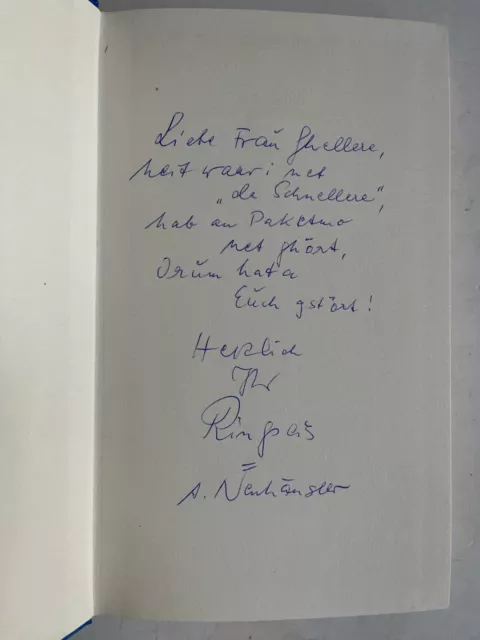 Liebe Frau Ghellere,
heit waar i net
„de Schnellere",
hab an Paketmo
net ghört,
Drum hat a
Euch gstört!
Herzlich
Ihr
Ringseis
=
A. Neuhäusler